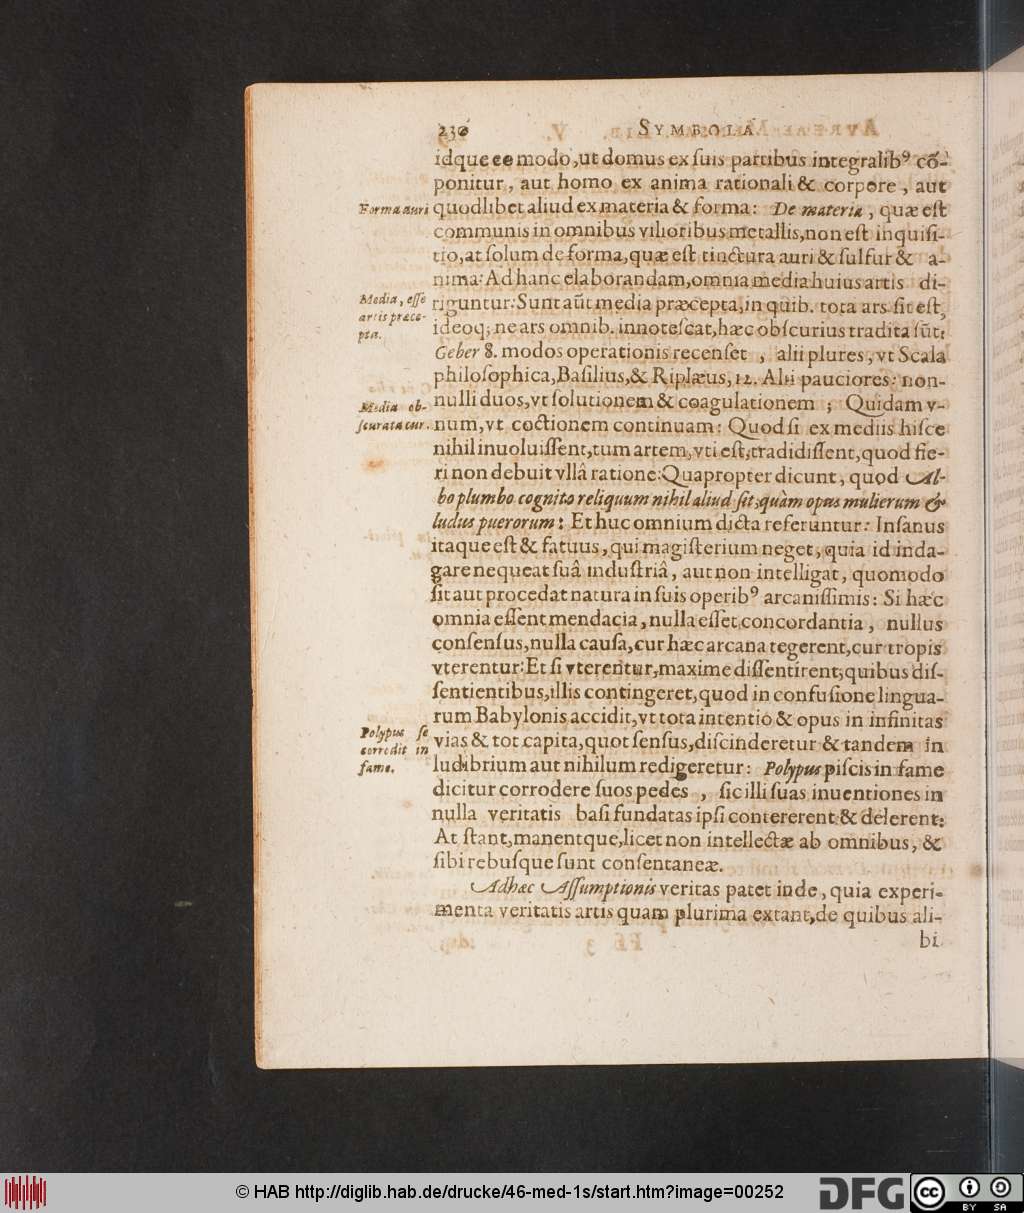 230 SYMBOLA
idque eo modo, ut domus ex suis partibus integralibꝰ cō-
ponitur, aut homo ex anima rationali & corpore, aut
Forma auri quodlibet aliud ex materia & forma: De materia, quæ est
communis in omnibus vilioribus metallis, non est inquisi-
tio, at solum de forma, quæ est tinctura auri & sulfur & a-
nima: Ad hanc elaborandam, omnia media huius artis di-
Media, esse riguntur: Sunt aūt media præcepta, in quib. tota ars sit est,
artis præce-
pta. ideoq; ne ars omnib. innotescat, hæc obscurius tradita sūt:
Geber 8. modos operationis recenset, alii plures, vt Scala
philosophica, Basilius, & Riplæus, 12. Alii pauciores: non-
Media ob- nulli duos, vt solutionem & coagulationem; Quidam v-
scurata cur. num, vt coctionem continuam: Quod si ex mediis hisce
nihil inuoluissent, tum artem, vti est, tradidissent, quod fie-
ri non debuit vllâ ratione: Quapropter dicunt, quod Al-
bo plumbo cognito reliquum nihil aliud sit, quàm opus mulierum &
ludus puerorum: Et huc omnium dicta referuntur: Insanus
itaque est & fatuus, qui magisterium neget, quia id inda-
gare nequeat suâ industriâ, aut non intelligat, quomodo
sit aut procedat natura in suis operibꝰ arcanissimis: Si hæc
omnia essent mendacia, nulla esset concordantia, nullus
consensus, nulla causa, cur hæc arcana tegerent, cur tropis
vterentur: Et si vterentur, maxime dissentirent, quibus dis-
sentientibus, illis contingeret, quod in confusione lingua-
rum Babylonis accidit, vt tota intentio & opus in infinitas
Polypus se
corrodit in vias & tot capita, quot sensus, discinderetur & tandem in
fame. ludibrium aut nihilum redigeretur: Polypus piscis in fame
dicitur corrodere suos pedes, sic illi suas inuentiones in
nulla veritatis basi fundatas ipsi contererent & delerent:
At stant, manentque, licet non intellectæ ab omnibus, &
sibi rebusque sunt consentaneæ.
Adhæc Assumptionis veritas patet inde, quia experi-
menta veritatis artis quam plurima extant, de quibus ali-
bi
© HAB http://diglib.hab.de/drucke/46-med-1s/start.htm?image=00252 DFG cc BY SA